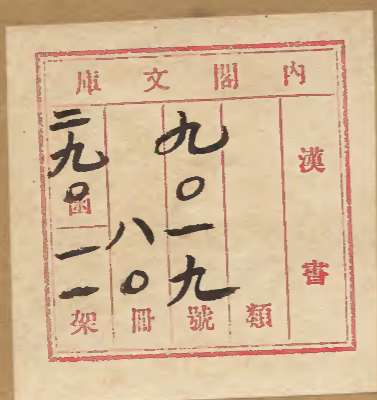 内閣文庫
漢書
類
九〇一九號
八〇冊
二九〇函
一一架